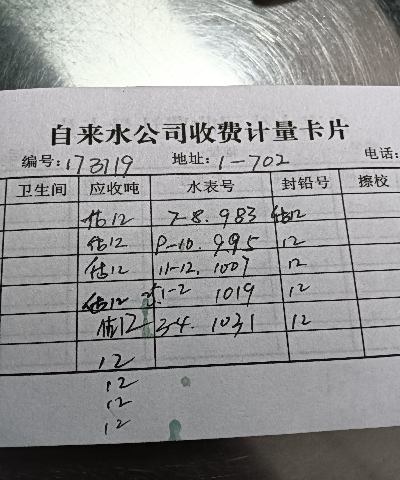 自来水公司收费计量卡片
编号:173119 地址:1-702 电话:
卫生间 应收吨 水表号 封铅号 擦校
估12 7-8. 983 估12
估12 9-10. 995 12
估12 11-12. 1007 12
估12 1-2 1019 12
估12 3-4. 1031 12
12
12
12
12